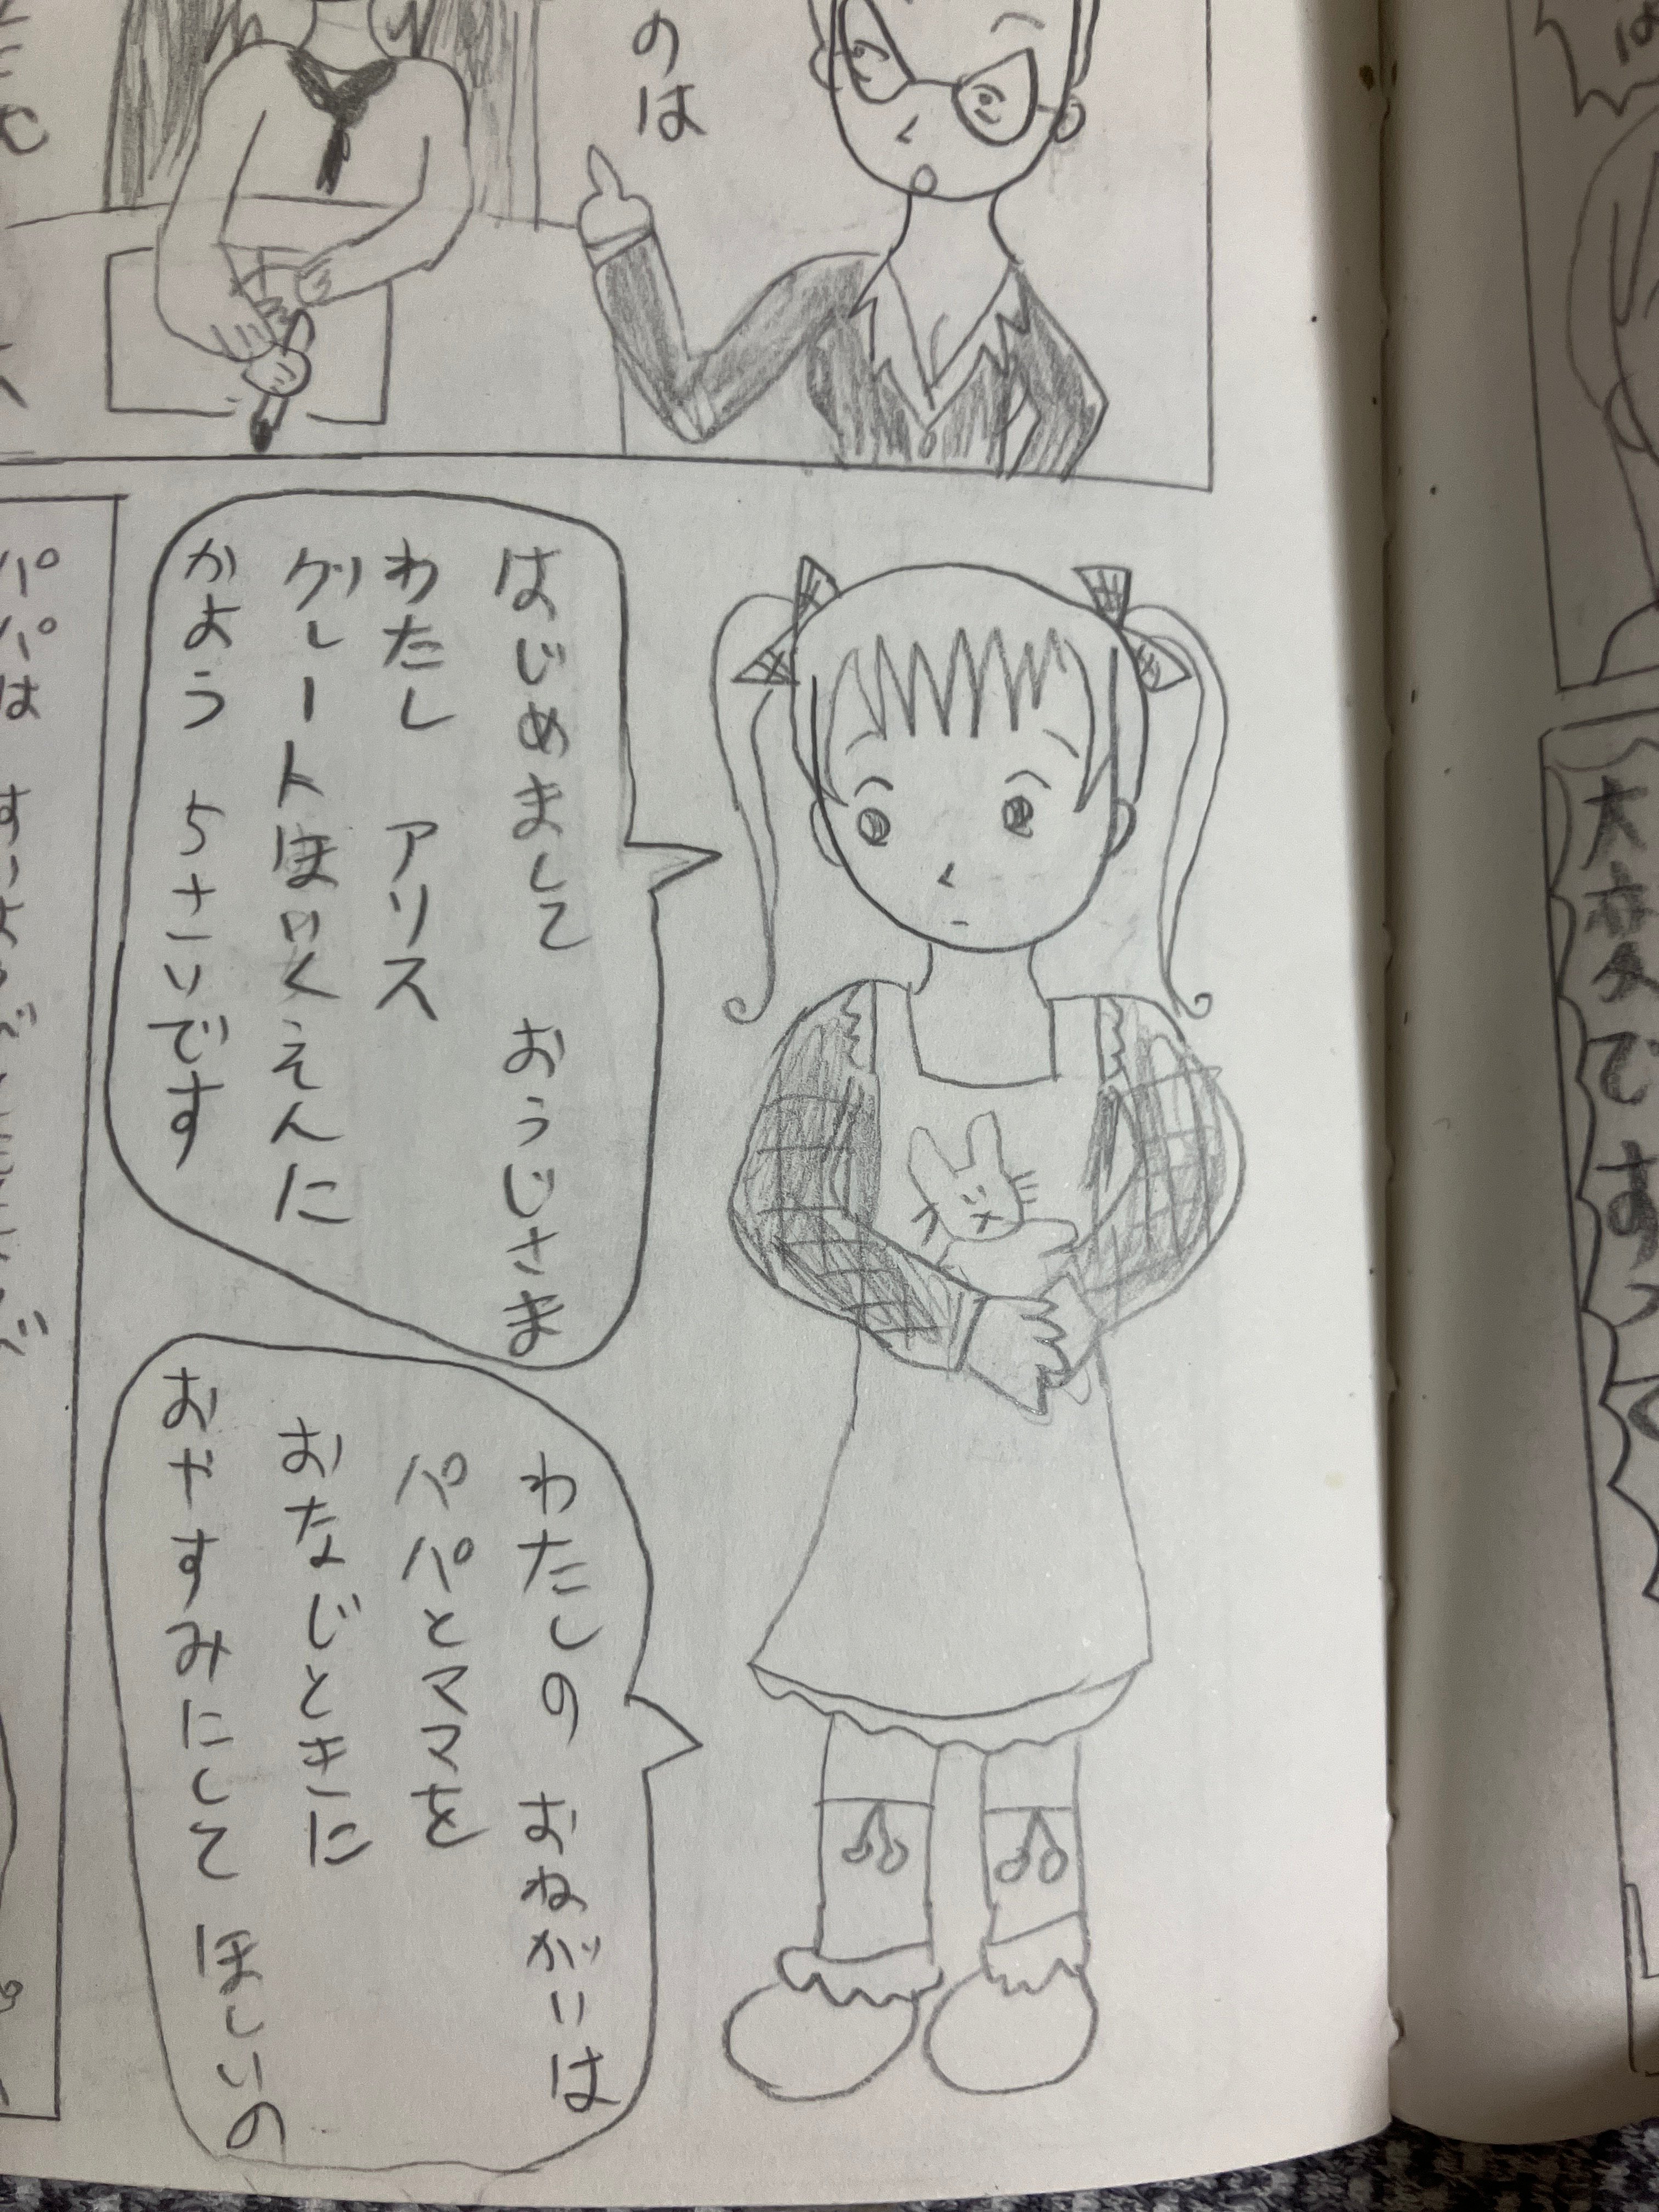 のは
はじめまして おうじさま
わたし アリス
グレートほいくえんに
かよう 5さいです
わたしの おねがいは
パパとママを
おなじときに
おやすみにして ほしいの
パパは
大変ですっ